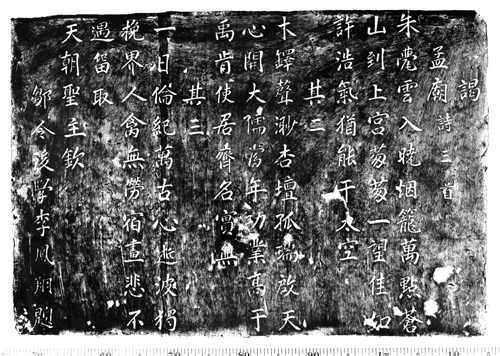 謁
孟廟詩三首
朱甍雲入曉烟籠萬點蒼
山到上宮芴芴一望佳如
許浩氣猶能干太空
其二
木鐸聲渺杏壇孤端啟天
心開大儒當年功業高于
禹肯使居齊名實無
其三
一日倫紀萬古心逝波獨
挽界人禽無勞宿晝悲不
遇留取
天朝聖主欽
鄒令後學李鳳翔題